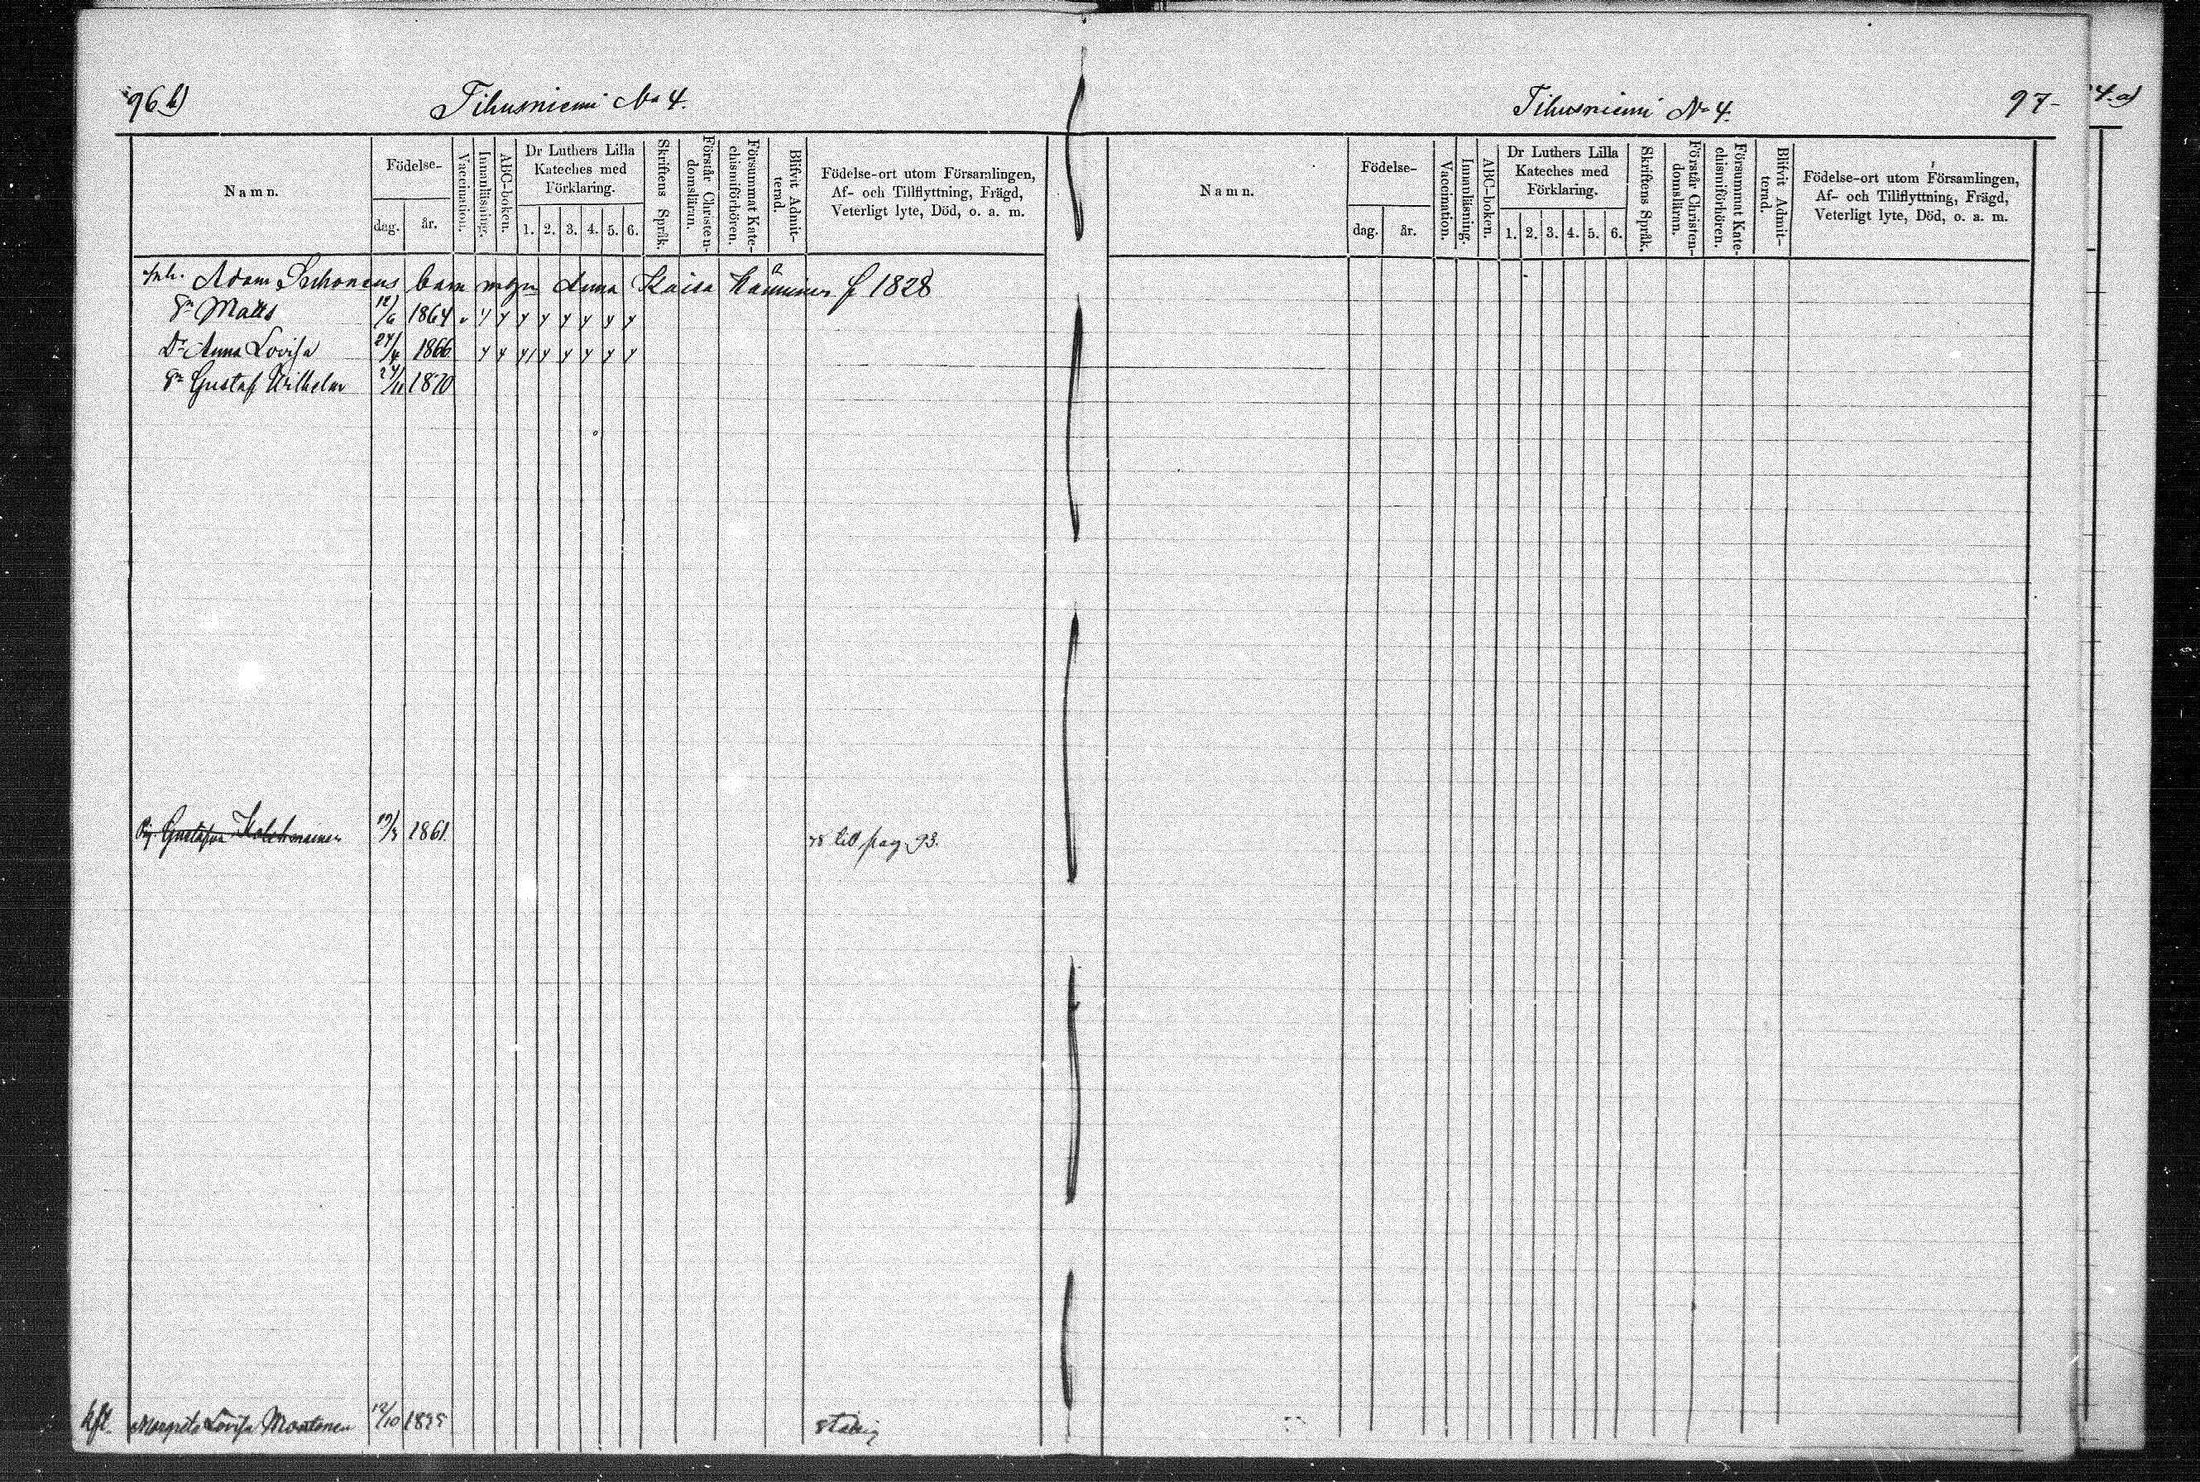 96 b)
Tihusniemi No 4.
Namn.
Födelse-
dag.
år.
Vaccination.
Innanläsning.
ABC-boken.
Dr Luthers Lilla
Kateches med
Förklaring.
1. 2. 3. 4. 5. 6.
Skriftens Språk.
Förstår Christen-
domsläran.
Försummat Kate-
chismiförhören.
Blifvit Admit-
terad.
Födelse-ort utom Församlingen,
Af- och Tillflyttning, Frägd,
Veterligt lyte, Död, o. a. m.
Inh. Adam barn m Anna Kaisa f 1828
Sn Matts 12/6 1864
Dr Anna Lovisa 24/4 1866
Sn Gustaf Wilhelm 24/11 1870
Pig. Gustafva 19/7 1861. 78 till pag. 93.
Margreta Lovisa 12/10 1875
Tihusniemi No 4.
97
Namn.
Födelse-
dag.
år.
Vaccination.
Innanläsning.
ABC-boken.
Dr Luthers Lilla
Kateches med
Förklaring.
1. 2. 3. 4. 5. 6.
Skriftens Språk.
Förstår Christen-
domsläran.
Försummat Kate-
chismiförhören.
Blifvit Admit-
terad.
Födelse-ort utom Församlingen,
Af- och Tillflyttning, Frägd,
Veterligt lyte, Död, o. a. m.
4. a)